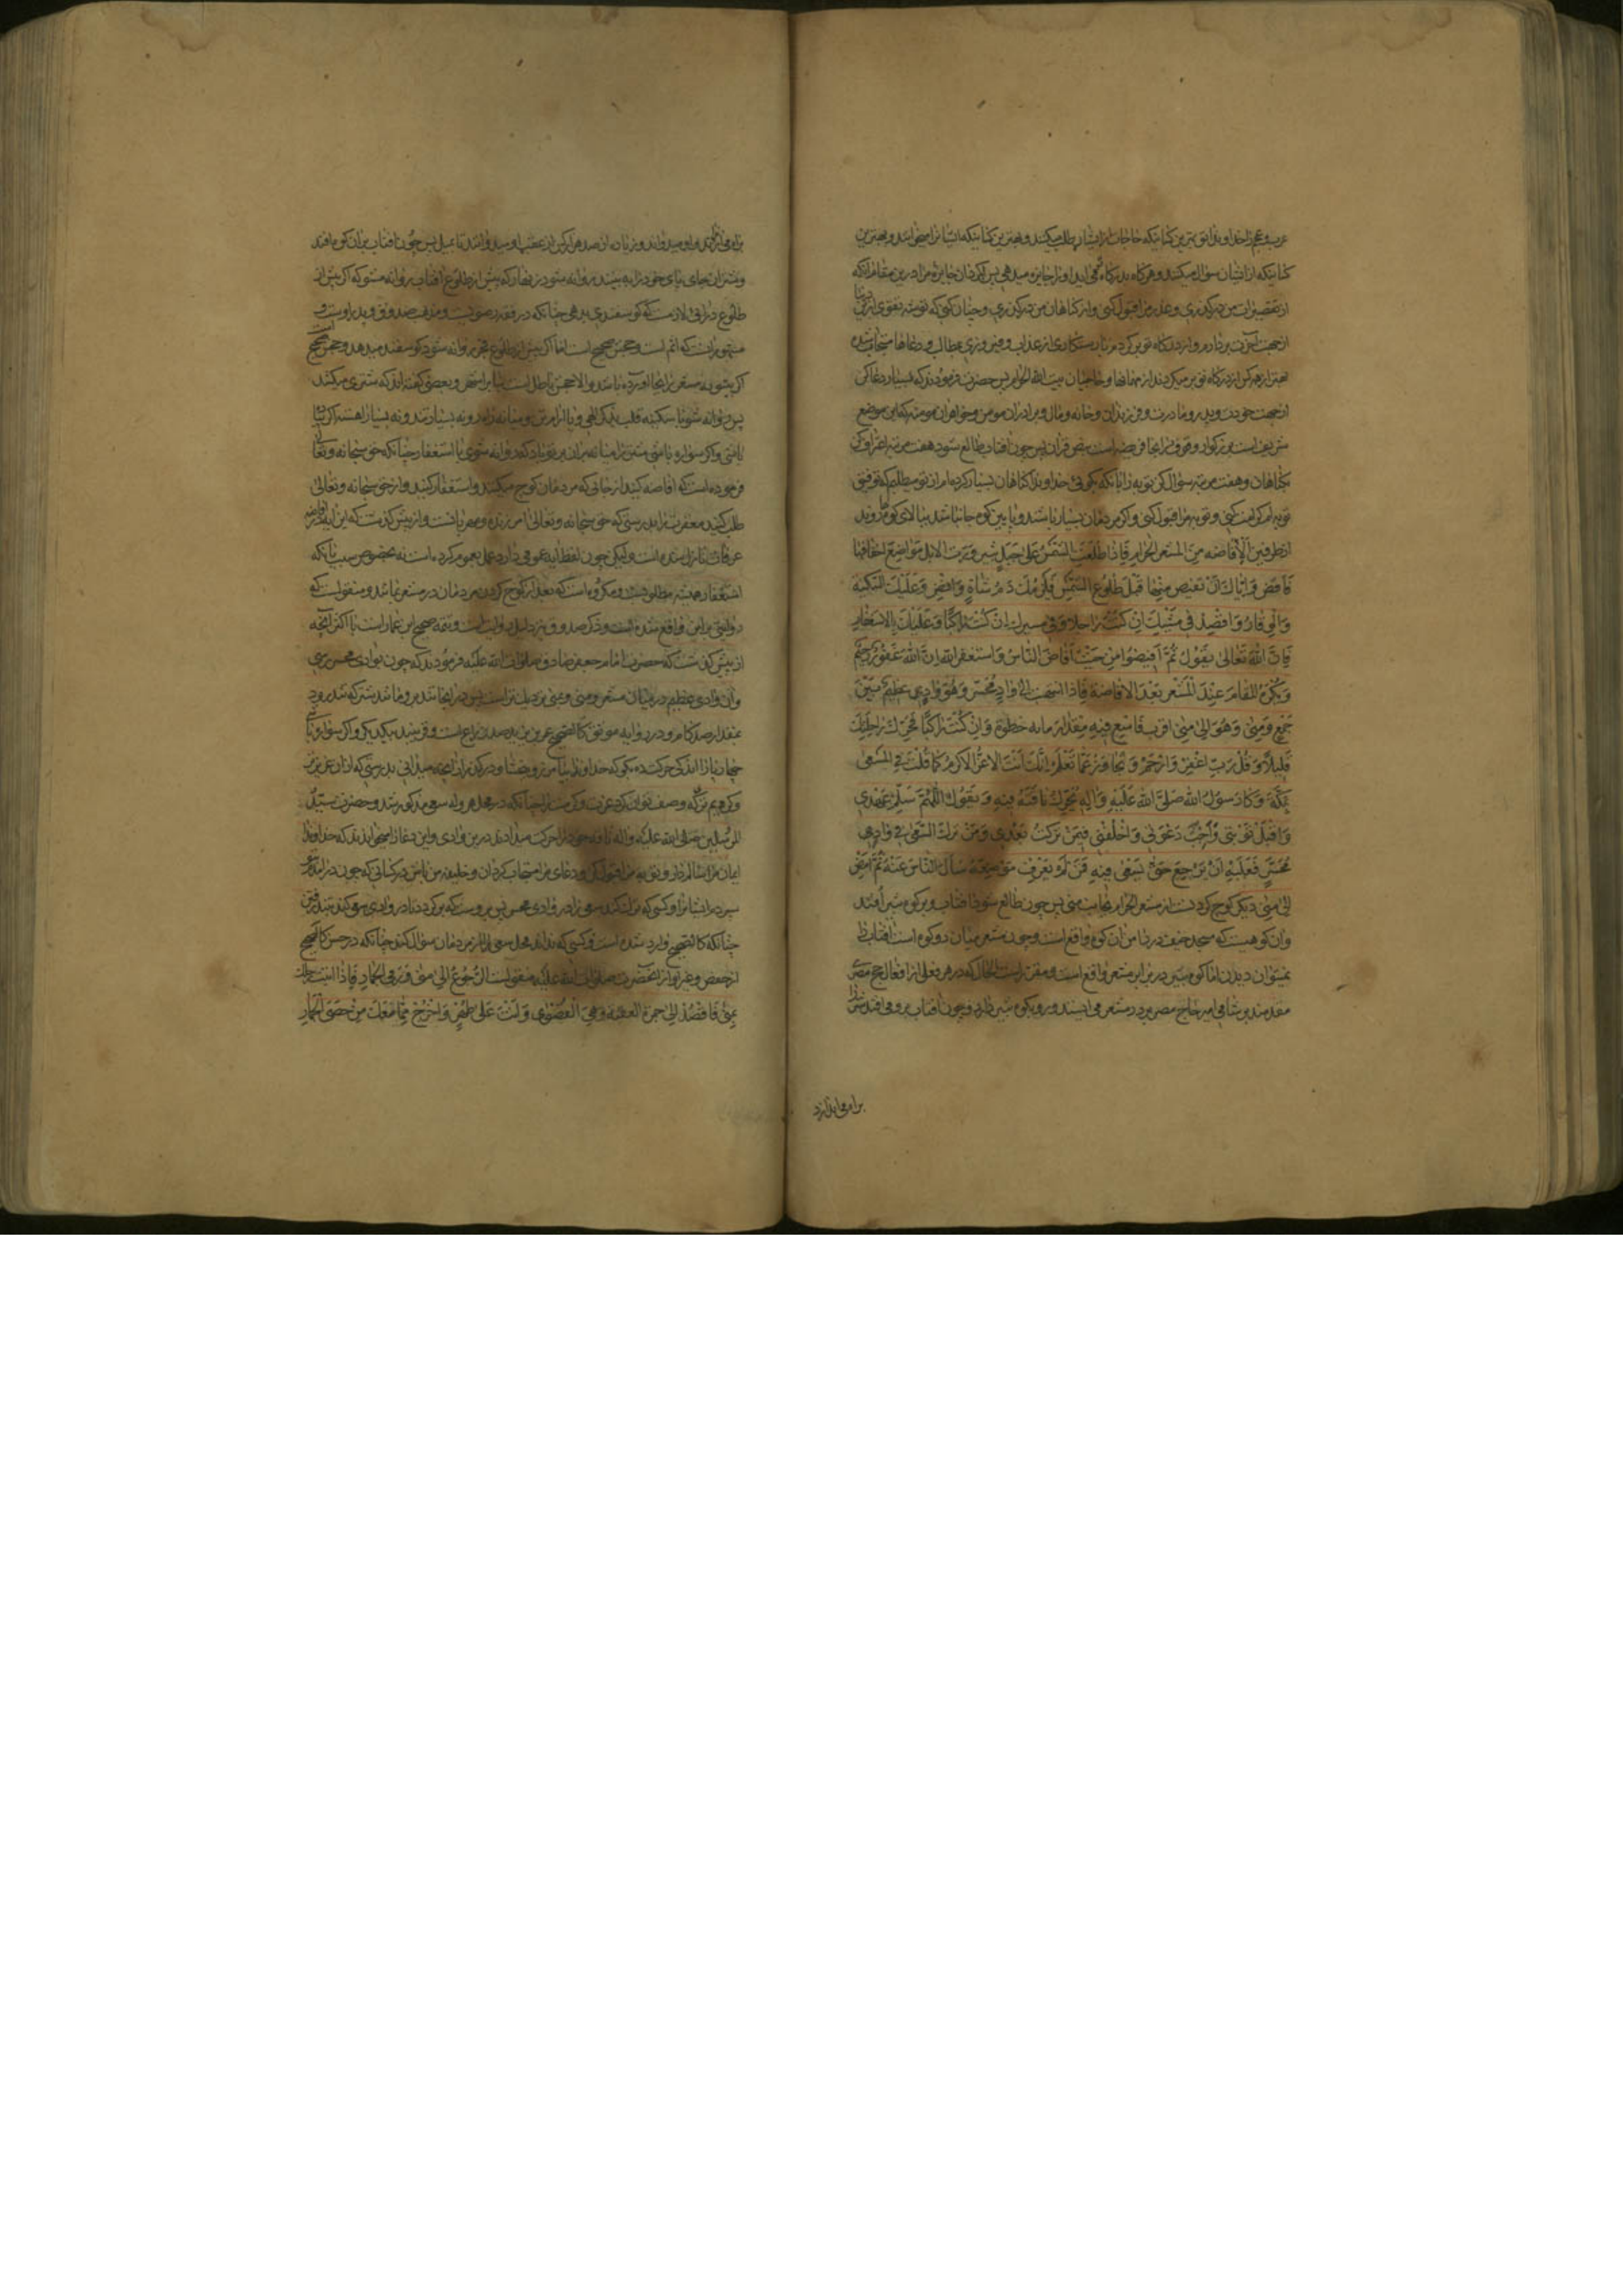 عرب و عجم را خداوندا تو بهترین کسانیکه حاجات از ایشان طلب میکنند و بهترین کسانیکه ایشانرا میخوانند و بهترین
کسانیکه از ایشان سؤال میکنند و هرکاه بدرکاه کسی اید او را جایزه میدهی پس بکردان جایزه مرا درین مقام آنکه
از تقصیرات من درکذری و عذر مرا قبول کنی و از کناهان من درکذری و چنان کنی که توشه تقوی از دنیا
از جهت آخرت بردارم و از درکاه تو برکردم با رستکاری از عذاب و فیروزی بمطالب و دعاها مستجاب شده
بهتر از هرکس از درکاه تو برمیکردند از مهمانها و حاجیان بیت الله الحرام پس حضرت فرمودند که بسیار دعا کن
از جهت خودت و پدر و مادرت و فرزندان و خانه و مال و برادران مومن و خواهران مومنه که این موضع
شریف است بزرکوار و وقوف در اینجا فریضه است بنص قران پس چون افتاب طالع شود هفت مرتبه اعتراف کن
بکناهان و هفت مرتبه سؤال کن توبه را بانکه بکوئی خداوندا کناهان بسیار کرده ام از تو میطلبم که توفیق
توبه ام کرامت کنی و توبه مرا قبول کنی و اکر مردمان بسیار باشند و پایین کوه جا نباشد ببالای کوه روند
از طرفین الافاضه من المشعر الحرام فاذا طلعت الشمس علی جبل ثبیر و رات الابل مواضع اخفافها
فافض و ایاک ان تفیض منها قبل طلوع الشمس فیلزمک دم شاة و افض و علیک السکینة
و الوقار و اقصد فی مشیک ان کنت راجلا و فی مسیرک ان کنت راکبا و علیک بالاستغفار
فان الله تعالی یقول ثم افیضوا من حیث افاض الناس و استغفروا الله ان الله غفور رحیم
و یکره المقام عند المشعر بعد الافاضة فاذا انتهیت الی وادی محسر و هو وادی عظیم بین
جمع و منی و هو الی منی اقرب فاسع فیه مقدار مایه خطوة و ان کنت راکبا فحرک راحلتک
قلیلا و قل رب اغفر و ارحم و تجاوز عما تعلم انک انت الاعز الاکرم کما قلت فی المسعی
بمکة و کان رسول الله صلی الله علیه و اله یحرک ناقته فیه و یقول اللهم سلم عهدی
و اقبل توبتی و اجب دعوتی و اخلفنی فیمن ترکت بعدی و من ترک السعی فی وادی
محسر فعلیه ان یرجع حتی یسعی فیه فمن لم یعرف موضعه سأل الناس عنه ثم امض
الی منی دیکر کوچ کردنت از مشعر الحرام بجانب منی پس چون طالع شود افتاب و بر کوه ثبیر افتد
و ان کوهیست که مسجد خیف در دامن ان کوه واقع است و چون مشعر میان دو کوه است افتاب را
نمیتوان دیدن اما کوه ثبیر در برابر مشعر واقع است و مقرر است الحال که در هر فعلی از افعال حج مصری
مقدمند بر شامی امیر حاج مصری در مشعر می ایستد و رو بکوه ثبیر دارد و چون افتاب برو می افتد شتر را
براه می اندازد
براه می اندازند و او میدواند و زیاده از صد هزار کس از عقب او میدوانند تا بمیل پس چون افتاب بر ان کوه افتد
و شتران جای پای خود را به بینند روانه شو و زنهار که پیش از طلوع افتاب روانه مشو که اکر پیش از
طلوع درافی لازمست که کوسفندی بدهی چنانکه در فقه رضویست و مذهب صدوق و پدر اوست و
مشهور انست که اثم است و حجش صحیح است اما اکر پیش از طلوع فجر روانه شود کوسفند میدهد و حجش صحیح است
اکر بنیت مشعر در انجا اورده باشد والا حجش باطل است بنا بر مشهور و بعضی کفته اند که شتری میکشد
پس روانه شو با سکینه قلب بذکر الهی و با ارام تن و میانه رو نه بسیار تند و نه بسیار اهسته اکر پیاده
باشی و اکر سواره باشی شتر را میانه بران و بر تو باد که روانه شوی با استغفار چنانکه حق سبحانه و تعالی
فرموده است که افاضه کنید از جائی که مردمان کوچ میکنند و استغفار کنید و از حق سبحانه و تعالی
طلب کنید مغفرت را بدرستی که حق سبحانه و تعالی امرزنده و مهربانست و از پیش کذشت که این ایه در افاضه
عرفات نازل شده است ولیکن چون لفظ ایه عمومی دارد عمل بعموم کرده است نه بخصوص سبب با انکه
استغفار همیشه مطلوبست و مکروه است که بعد از کوچ کردن مردمان در مشعر بمانند و منقولست که
روایتی بر این واقع شده است و ذکر صدوق نیز دلیل روایت است و تتمه صحیح ابن عمار است با اکثر آنچه
از پیش کذشت که حضرت امام جعفر صادق صلوات الله علیه فرمودند که چون بوادی محسر رسی
و ان وادی عظیم در میان مشعر و منی و بمنی نزدیک تر است پس در انجا تند برو مانند شتر که تند رود
بمقدار صد کام و در روایه موثق کالصحیح عمر بن یزید صد ذراع است و قریبند بیکدیکر و اکر سواره باشی
چهارپا را اندکی حرکت ده بکو که خداوندا بیامرز و ببخشا و درکذر از انچه میدانی بدرستی که از ان عزیزتر
و کریم تری که وصف توان کرد عزت و کرمت را چنانکه در محل هروله سعی مذکور شد و حضرت سید
المرسلین صلی الله علیه و اله ناقه خود را حرکت میدادند درین وادی و این دعا را میخواندند که خداوندا
ایمان مرا سالم دار و توبه مرا قبول کن و دعای مرا مستجاب کردان و خلیفه من باش در کسانی که چون در مدینه
سپردم ایشانرا و کسی که ترک کند سعی را در وادی محسر پس بروست که برکردد تا در وادی سعی کند بتند رفتن
چنانکه کالصحیح وارد شده است و کسی که نداند محل سعی را از مردمان سؤال کند چنانکه در حسن کالصحیح
از حفص و غیر او از انحضرت صلوات الله علیه منقولست الرجوع الی منی و رمی الجمار فاذا اتیت رحلک
بمنی فاقصد الی جمرة العقبة و هی القصوی و انت علی طهر و اخرج مما معک من حصی الجمار